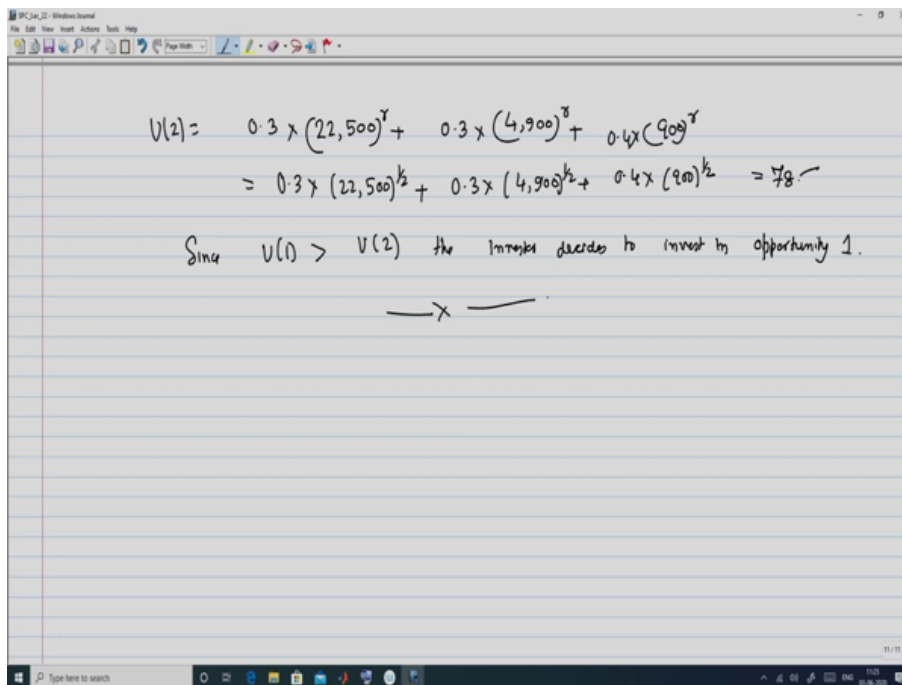 SPC_Lec_22 - Windows Journal
File Edit View Insert Actions Tools Help
Page Width
U(2) = 0.3 x (22,500)^γ + 0.3 x (4,900)^γ + 0.4x (900)^γ
= 0.3 x (22,500)^½ + 0.3 x (4,900)^½ + 0.4 x (900)^½ = 78
Since U(1) > U(2) the Investor decides to invest in opportunity 1.
x
11/11
Type here to search
ENG
11:25